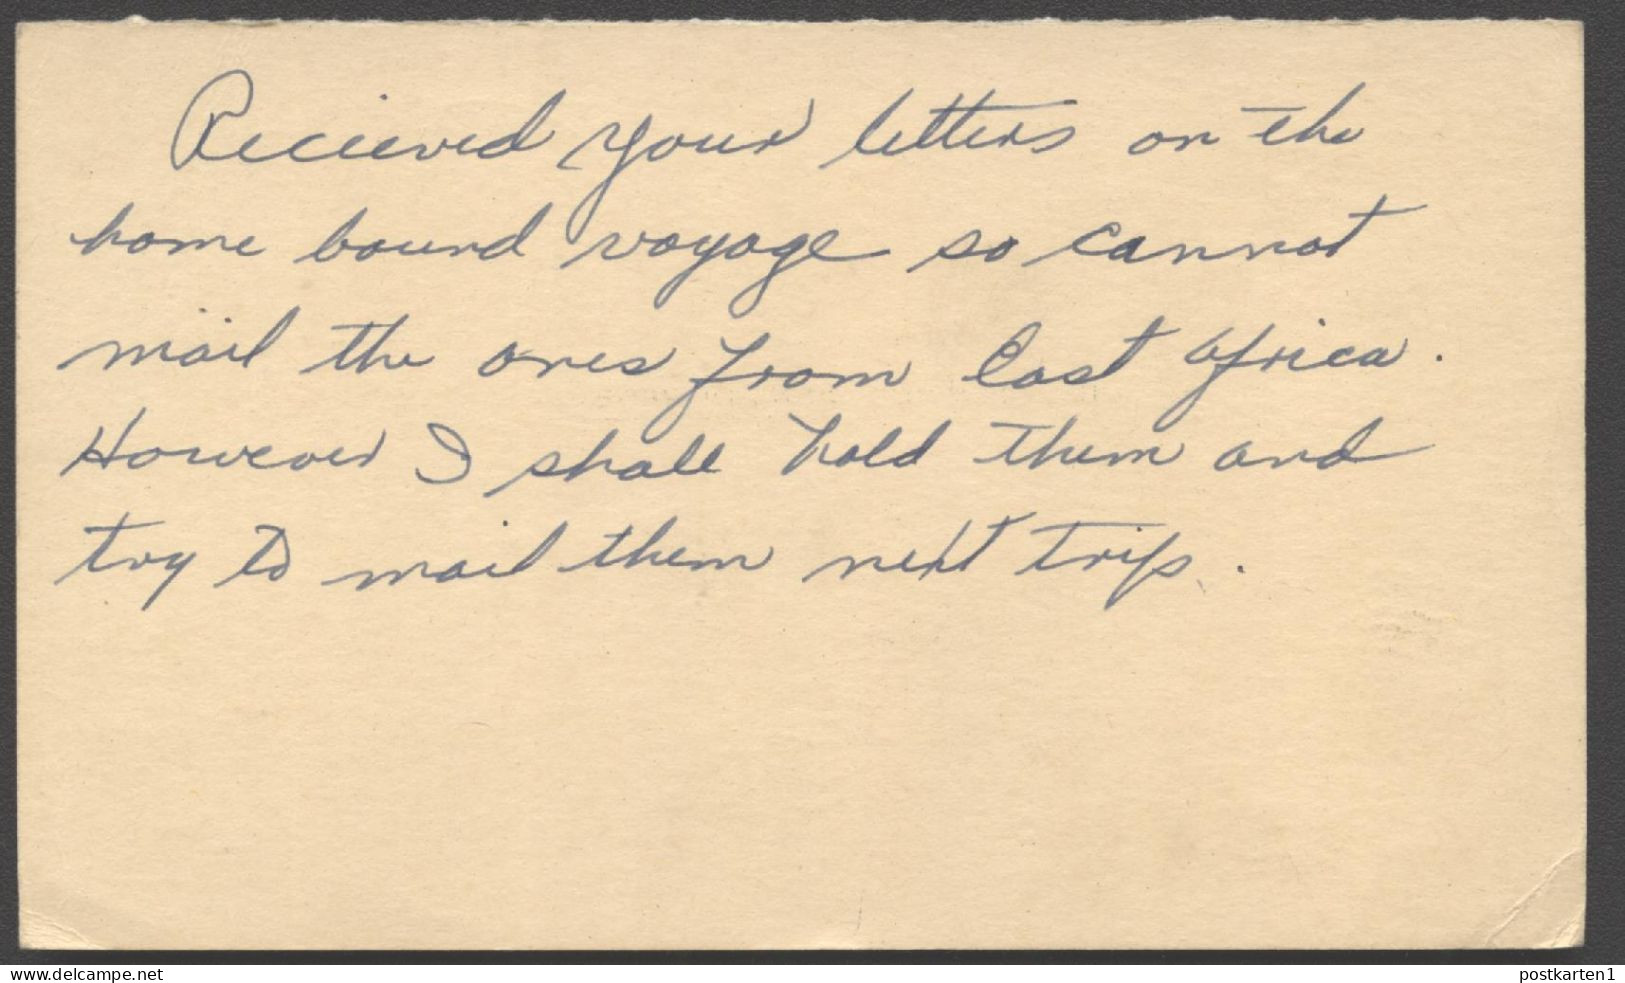 Recieved your letters on the
home bound voyage so cannot
mail the ones from East Africa.
However I shall hold them and
try to mail them next trip.
www.delcampe.net
postkarten1